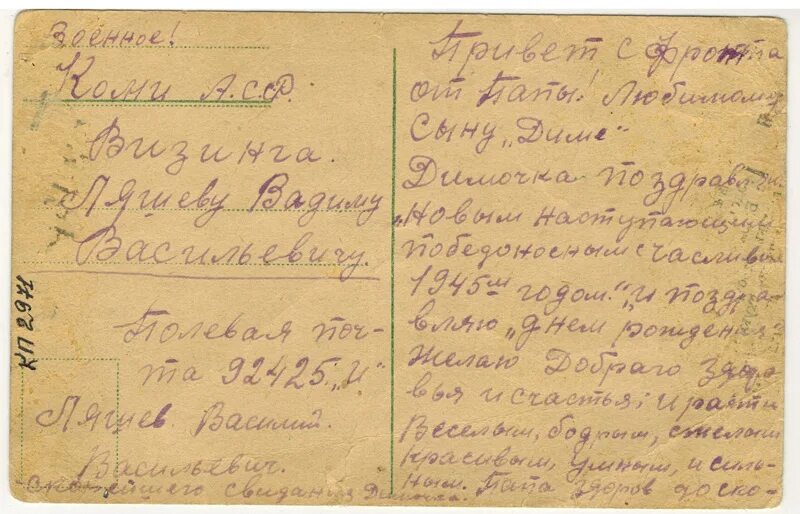 Военное!
Коми А.с.с.Р.
Визинга.
Лягшеву Вадиму
Васильевичу.
КП 2971
Полевая поч-
та 92425 „И"
Лягшев. Василий.
Васильевич.
Привет с фронта
от Папы! Любимому
Сыну „Диме"
Димочка поздравляю
„Новым наступающим
победоносным счасливым
1945м годом." и поздра
вляю „днем рождения
Желаю Доброго Здоро
вья и счастья; и расти
Веселым, бодрым, смелым
красивым, умным, и силь-
ным. Папа здоров до ско-
скорейшего свидания Димочка.